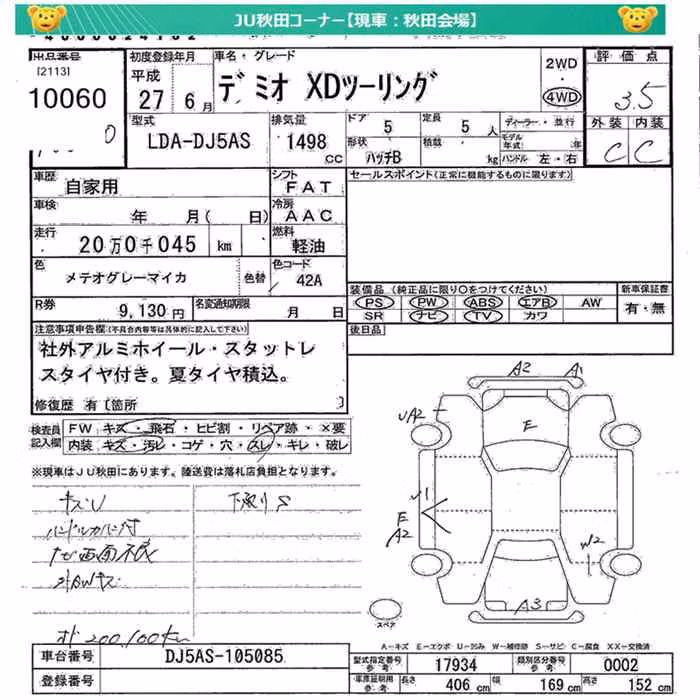 JU秋田コーナー【現車：秋田会場】
出品番号
[2113]
10060
初度登録年月
平成
27 6月
車名・グレード
デミオ XDツーリング
2WD
・
4WD
評価点
3.5
外装 内装
C C
型式
LDA-DJ5AS
排気量
1498
cc
ドア 5
定員 5 人
形状 ハッチB
積載 kg
ディーラー・並行
モデル年式 年
ハンドル 左・右
車歴 自家用
シフト FAT
セールスポイント(正常に機能するものに限ります)
車検 年 月( 日)
冷房 AAC
走行 20万0千045 km
燃料 軽油
色 メテオグレーマイカ 色替
色コード 42A
装備品 (純正品に限り○をつけてください)
新車保証書
PS PW ABS エアB AW
SR ナビ TV カワ
有・無
R券 9,130円
名変通知期限 月 日
後日品
注意事項申告欄(不具合内容等は具体的に記入して下さい)
社外アルミホイール・スタットレ
スタイヤ付き。夏タイヤ積込。
修復歴 有〔箇所 〕
検査員
記入欄
FW キズ・飛石・ヒビ割・リペア跡・×要
内装 キズ・汚レ・コゲ・穴・スレ・キレ・破レ
※現車はJU秋田にあります。陸送費は落札店負担となります。
キズU
下廻りS
ハンドルカバー付
ナビ画面不良
外AWキズ
オド200,100km
A2 A1
UA2
E
U1
E
A2
W2
A3
スペア
A－キズ E－エクボ U－凹み W－補修跡 S－サビ C－腐食 XX－交換済
車台番号 DJ5AS-105085
登録番号
型式指定番号 参考 17934
類別区分番号 参考 0002
車庫証明用 参考
長さ 406 cm 幅 169 cm 高さ 152 cm